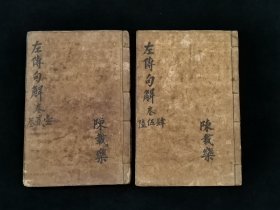 左傳句解卷首
卷壹
陳載樂
左傳句解卷肆
陸伍
陳載樂